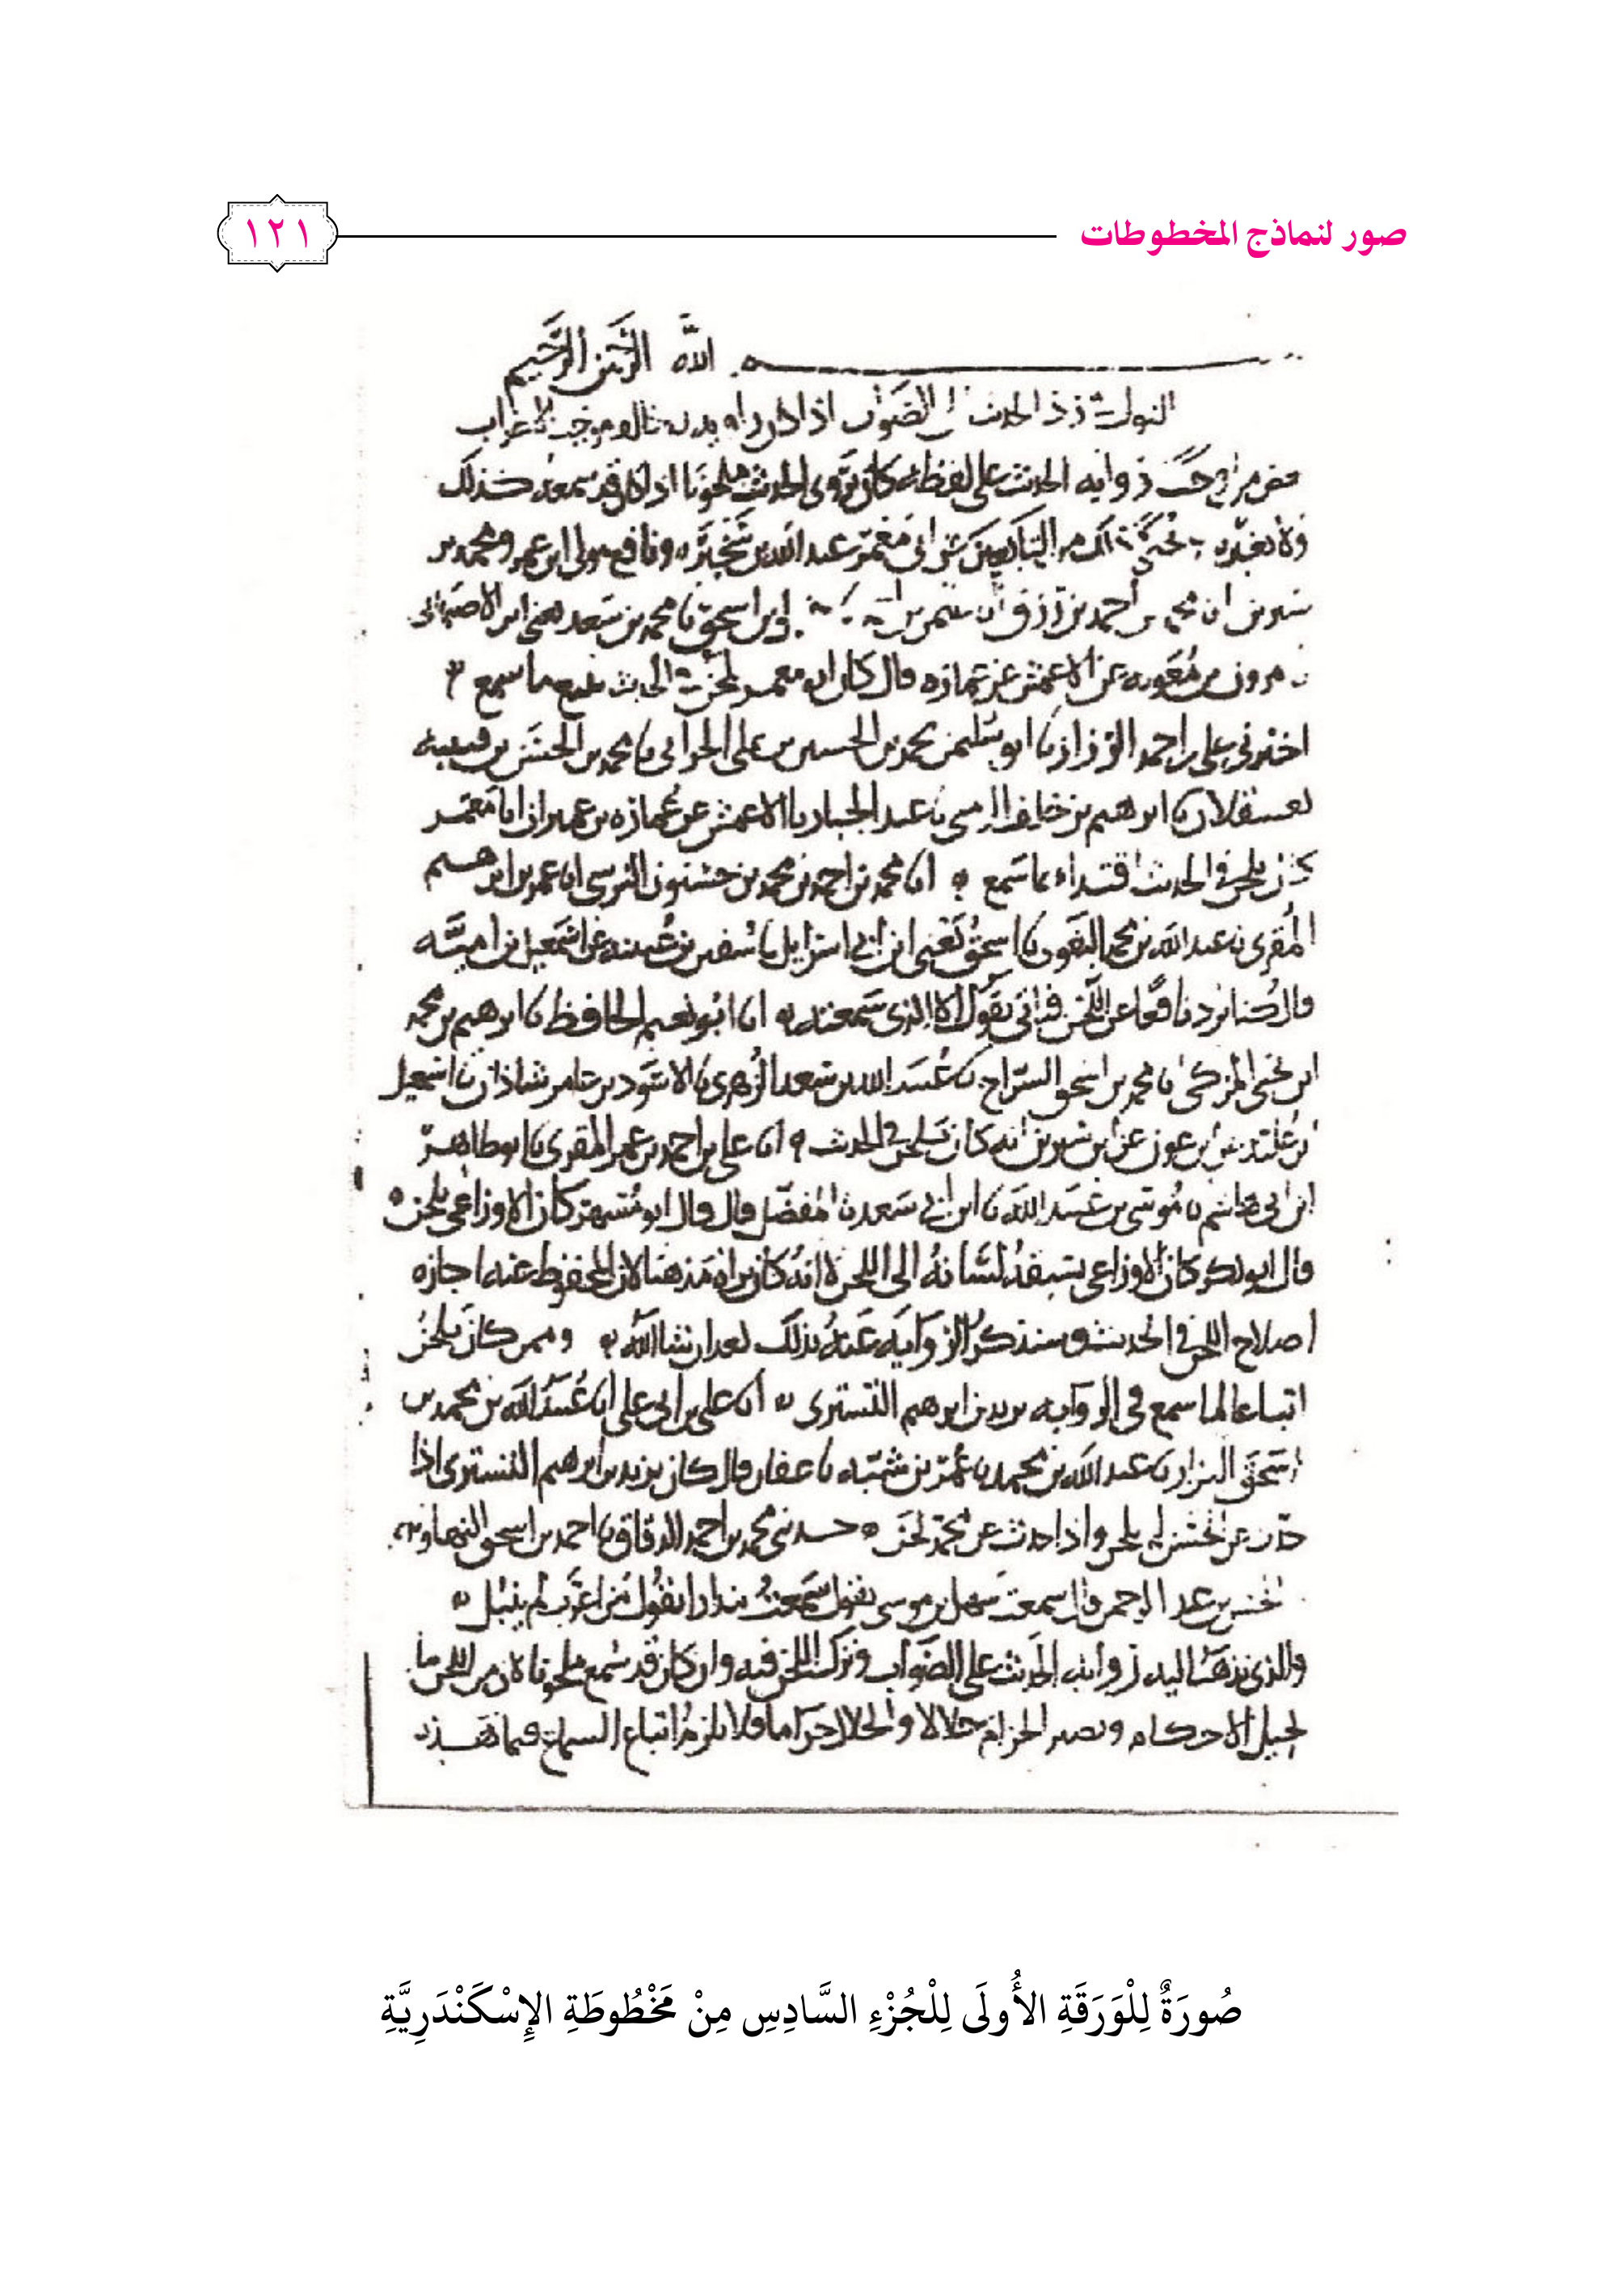 صور لنماذج المخطوطات
١٢١
بسم الله الرحمن الرحيم
القول في رد الحديث إلى الصواب إذا كان راويه قد خالف موجب الإعراب
الحديث على لفظه كان يروي الحديث ملحونا اذا كان قد سمعه كذلك
ولا يغيره التابعين كابي معمر عبد الله بن سخبره ونافع مولى ابن عمر ومحمد بن
سيرين محمد بن احمد بن رزق وابن اسحق نا محمد بن سعد يعني ابن الاصبهاني
عن الاعمش عن عماره قال كان ابو معمر يلحن في الحديث يتبع ما سمع
اخبرني علي بن احمد الرزاز نا ابو سليمن محمد بن الحسين بن علي الحراني نا محمد بن الحسن بن قتيبه
بعسقلان نا ابرهيم بن خلف نا عبد الجبار نا الاعمش عن عماره بن عمير ان ابا معمر
كان يلحن في الحديث اقتداء بما سمع انا محمد بن احمد بن محمد بن حسنون النرسي انا عمر بن ابرهيم
المقري نا عبد الله بن محمد البغوي نا اسحق يعني ابن ابي اسرايل نا سفين بن عيينه عن اسمعيل بن اميه
قال كنا نرد نافعا عن اللحن فيابى يقول الا الذي سمعته انا ابو نعيم الحافظ نا ابرهيم بن محمد
ابن يحيى المزكي نا محمد بن اسحق السراج نا عبيد الله بن سعد الزهري نا الاسود بن عامر شاذان نا اسمعيل
ابن عليه عن ابن عون عن ابن سيرين انه كان يلحن في الحديث انا علي بن احمد بن عمر المقري نا ابو طاهر
ابن ابي هاشم نا موسى بن عبيد الله نا ابن ابي سعد نا المفضل قال قال ابو مسهر كان الاوزاعي يلحن
قال ابو بكر كان الاوزاعي يسبقه لسانه الى اللحن لا انه كان يراه مذهبا لان المحفوظ عنه اجازه
اصلاح اللحن في الحديث وسنذكر الروايه عنه بذلك بعد ان شا الله وممن كان يلحن
اتباعا لما سمع في الروايه يزيد بن ابرهيم التستري انا علي بن ابي علي انا عبيد الله بن محمد بن
اسحق البزاز نا عبد الله بن محمد نا عمر بن شبه نا عفان قال كان يزيد بن ابرهيم التستري اذا
حدث عن الحسن لم يلحن واذا حدث عن محمد لحن حدثني محمد بن احمد الدقاق نا احمد بن اسحق النهاوندي
الحسن بن عبد الرحمن قال سمعت سهل بن موسى يقول سمعت بندارا يقول من اعرب لم ينبل
والذي نذهب اليه روايه الحديث على الصواب وترك اللحن فيه وان كان قد سمع ملحونا لان من اللحن ما
يحيل الاحكام ويصير الحرام حلالا والحلال حراما فلا يلزم اتباع السماع فيما هذه
صُورَةٌ لِلْوَرَقَةِ الأُولَى لِلْجُزْءِ السَّادِسِ مِنْ مَخْطُوطَةِ الإِسْكَنْدَرِيَّةِ